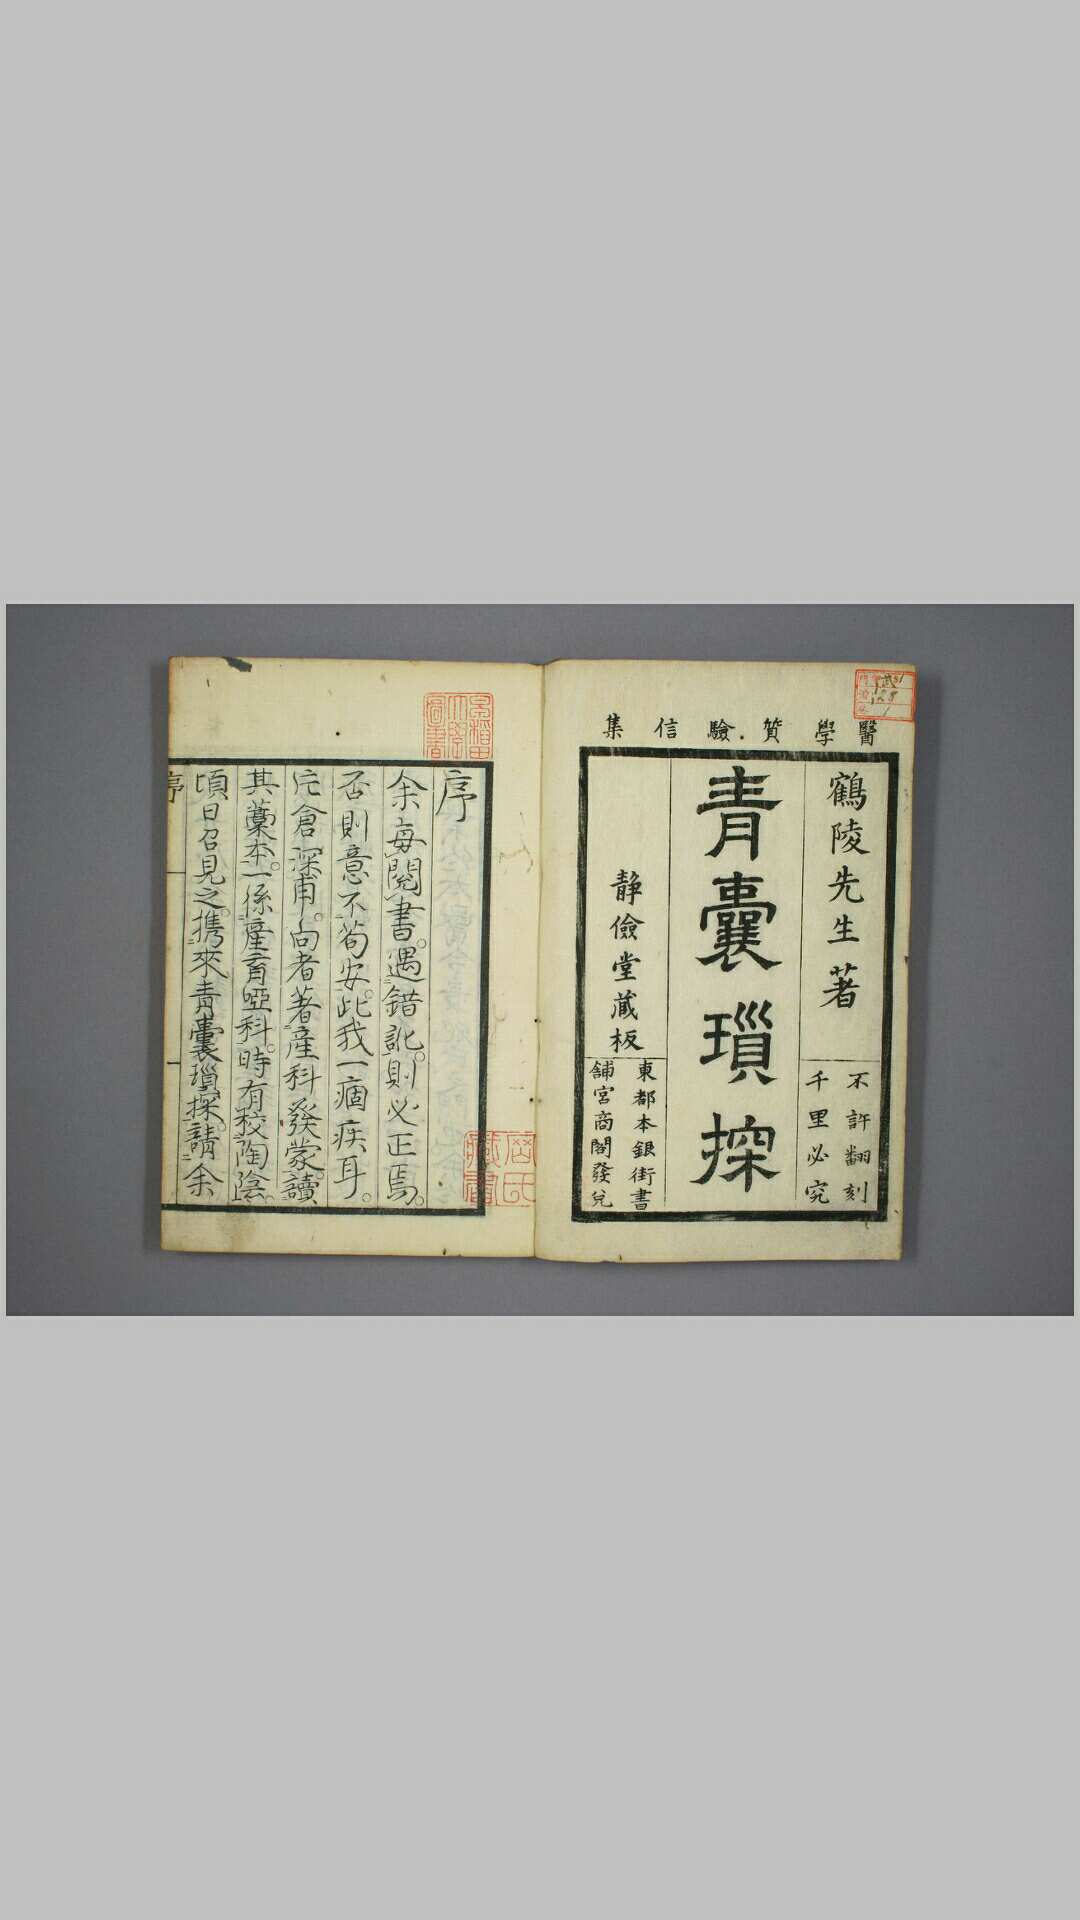 醫學質驗信集
鶴陵先生著
不許翻刻
千里必究
青囊瑣探
靜儉堂藏板
東都本銀街書
舖宮商閣發兌
序
余每閱書。遇錯訛。則必正焉。
否則意不苟安。此我一痼疾耳。
片倉深甫。向者著產科發蒙。讀
其藁本。一係產育啞科。時有校陶陰。
頃日召見之。携來青囊瑣探。請余
序
早稻田
大學
圖書
藏書